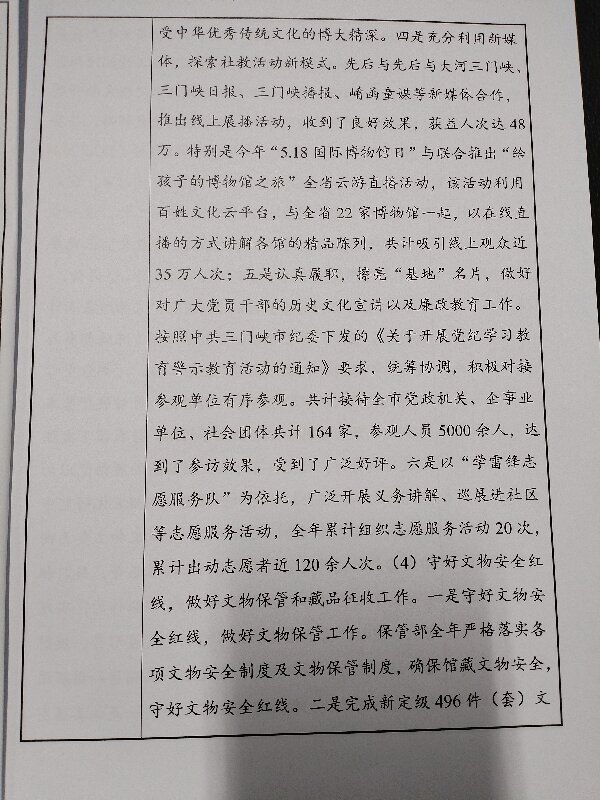 受中华优秀传统文化的博大精深。四是充分利用新媒
体，探索社教活动新模式。先后与先后与大河三门峡、
三门峡日报、三门峡播报、崤函童媒等新媒体合作，
推出线上展播活动，收到了良好效果，获益人次达 48
万。特别是今年“5.18 国际博物馆日”与联合推出“给
孩子的博物馆之旅”全省云游直播活动，该活动利用
百姓文化云平台，与全省 22 家博物馆一起，以在线直
播的方式讲解各馆的精品陈列，共计吸引线上观众近
35 万人次；五是认真履职，擦亮“基地”名片，做好
对广大党员干部的历史文化宣讲以及廉政教育工作。
按照中共三门峡市纪委下发的《关于开展党纪学习教
育警示教育活动的通知》要求，统筹协调，积极对接
参观单位有序参观。共计接待全市党政机关、企事业
单位、社会团体共计 164 家，参观人员 5000 余人，达
到了参访效果，受到了广泛好评。六是以“学雷锋志
愿服务队”为依托，广泛开展义务讲解、巡展进社区
等志愿服务活动，全年累计组织志愿服务活动 20 次，
累计出动志愿者近 120 余人次。（4）守好文物安全红
线，做好文物保管和藏品征收工作。一是守好文物安
全红线，做好文物保管工作。保管部全年严格落实各
项文物安全制度及文物保管制度，确保馆藏文物安全，
守好文物安全红线。二是完成新定级 496 件（套）文